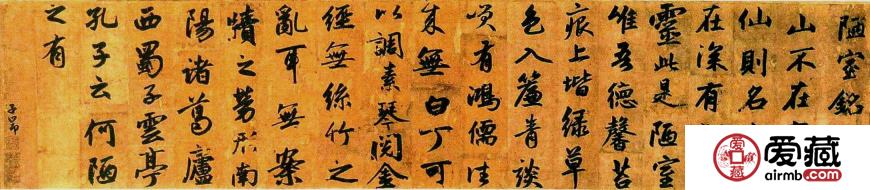 陋室銘
山不在
仙則名
在深有
靈此是陋室
惟吾德馨苔
痕上堦緑草
色入簾青談
咲有鴻儒往
来無白丁可
以調素琴閱金
經無絲竹之
亂耳無案
牘之勞形南
陽諸葛廬
西蜀子雲亭
孔子云何陋
之有
子昂
爱藏
airmb.com